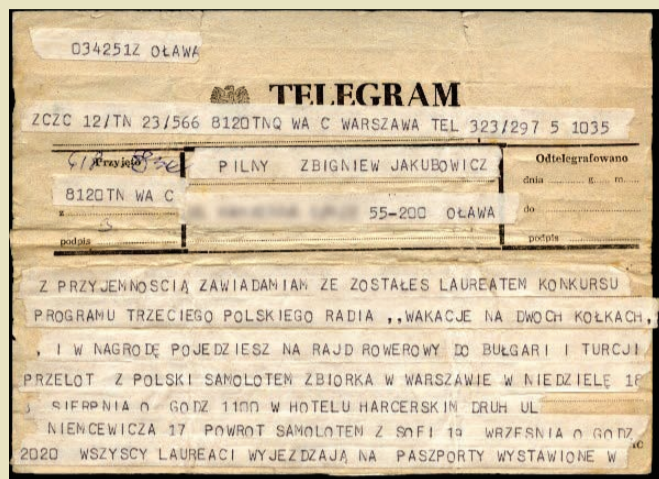 034251Z OŁAWA
TELEGRAM
ZCZC 12/TN 23/566 8120TNQ WA C WARSZAWA TEL 323/297 5 1035
Przyjęto
PILNY ZBIGNIEW JAKUBOWICZ
Odtelegrafowano
dnia g. m.
8120TN WA C
55-200 OŁAWA
do
podpis
podpis
Z PRZYJEMNOSCIĄ ZAWIADAMIAM ZE ZOSTAŁES LAUREATEM KONKURSU
PROGRAMU TRZECIEGO POLSKIEGO RADIA ,,WAKACJE NA DWOCH KOŁKACH,
, I W NAGRODĘ POJEDZIESZ NA RAJD ROWEROWY DO BUŁGARI I TURCJI
PRZELOT Z POLSKI SAMOLOTEM ZBIORKA W WARSZAWIE W NIEDZIELĘ 18
SIERPNIA O GODZ 1100 W HOTELU HARCERSKIM DRUH UL
NIEMCEWICZA 17 POWROT SAMOLOTEM Z SOFI 19 WRZESNIA O GODZ
2020 WSZYSCY LAUREACI WYJEZDZAJĄ NA PASZPORTY WYSTAWIONE W